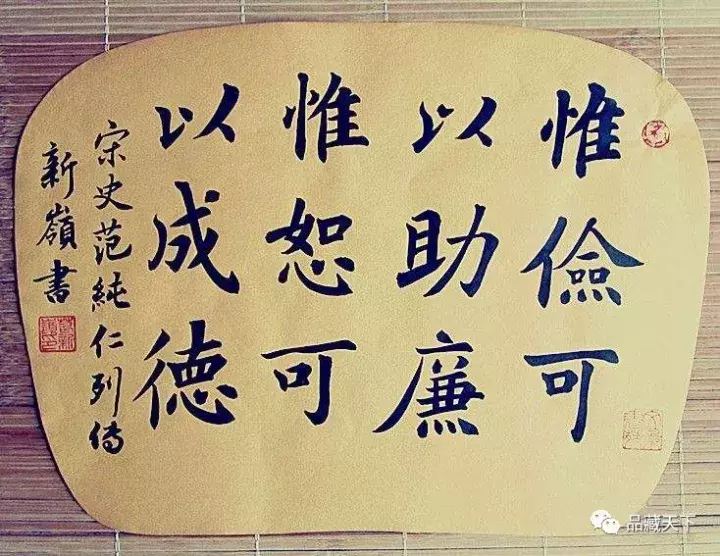 惟儉可
以助廉
惟恕可
以成德
宋史范純仁列傳
新嶺書
品藏天下